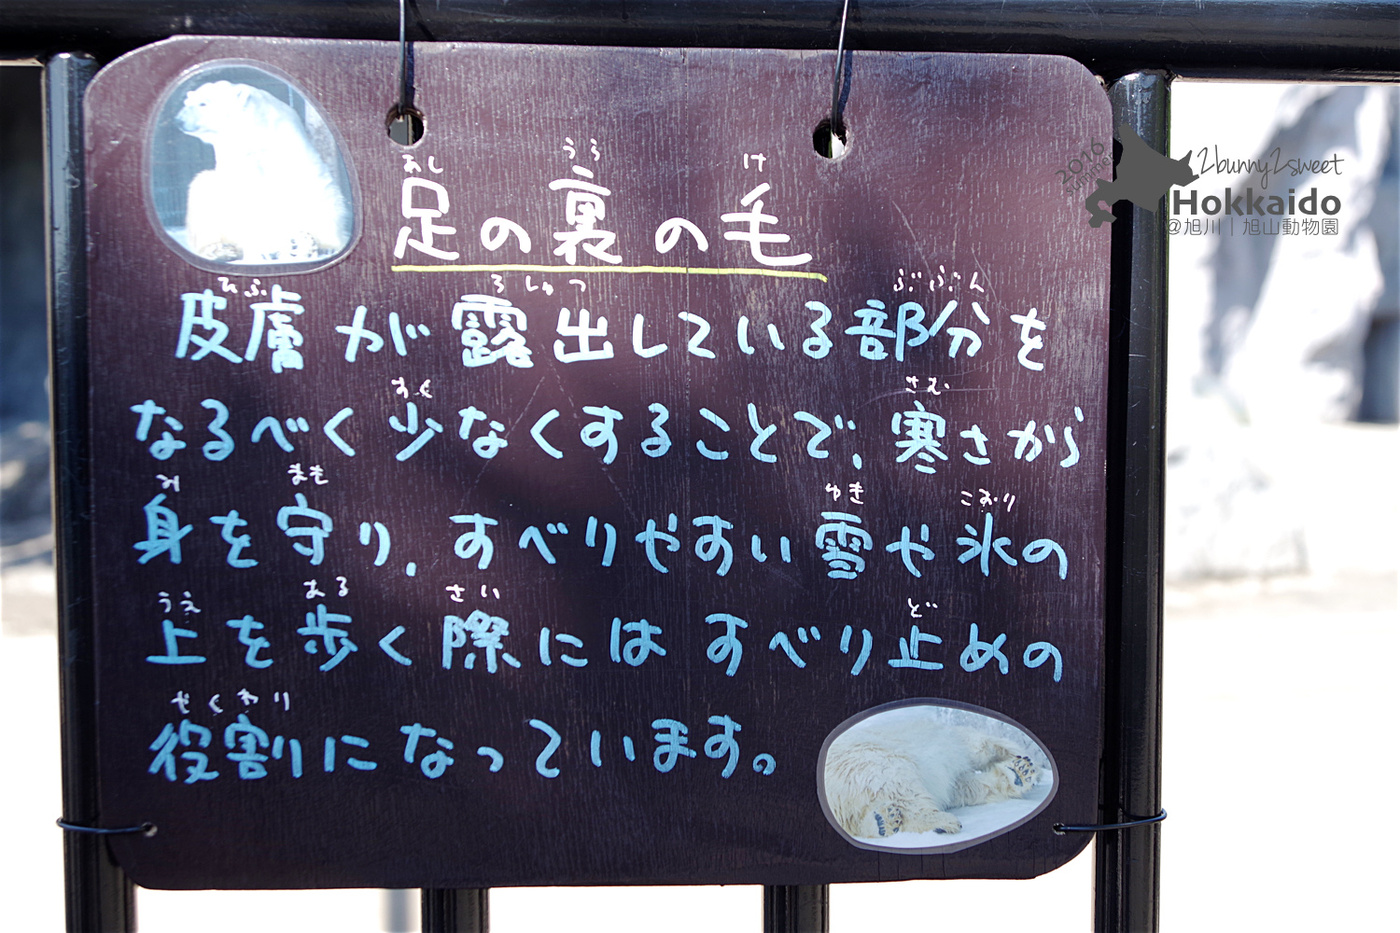 あし うら け
足の裏の毛
ひふ ろしゅつ ぶぶん
皮膚が露出している部分を
すく さむ
なるべく少なくすることで、寒さから
み まも ゆき こおり
身を守り、すべりやすい雪や氷の
うえ ある さい ど
上を歩く際にはすべり止めの
やくわり
役割になっています。
2016
2bunny2sweet
Hokkaido
@旭川｜旭山動物園